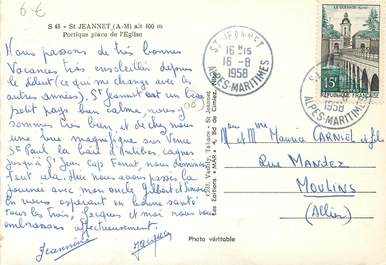 6 €
S 45 - St JEANNET (A-M) alt 400 m
Portique place de l'Eglise
Nous passons de très bonnes
Vacances très ensoleillées depuis
le début (ce qui me change avec les
autres années). St Jeannet est un beau
petit pays bien calme, nous y
sommes très bien et de chez nous
une vue magnifique sur Vence
St Paul la baie d'Antibes Cagnes
jusqu'à St Jean Cap Ferrat, nous dominons
tout cela. Hier nous avons passés la
journée avec mon oncle Gilbert et Simone
En vous espérant en bonne santé
tous les trois, Jacques et moi nous vous
embrassons affectueusement.
Jeannine Jacques
Photo véritable
Les Editions « MAR » Bd de Cimiez
ST JEANNET
16 H 15
16 - 8
1958
ALPES-MARITIMES
LE QUESNOY
15F
1958
ALPES-MARITIMES
et Mme Maurice CARNIEL et fils
Rue MANDEZ
MOULINS
(Allier)